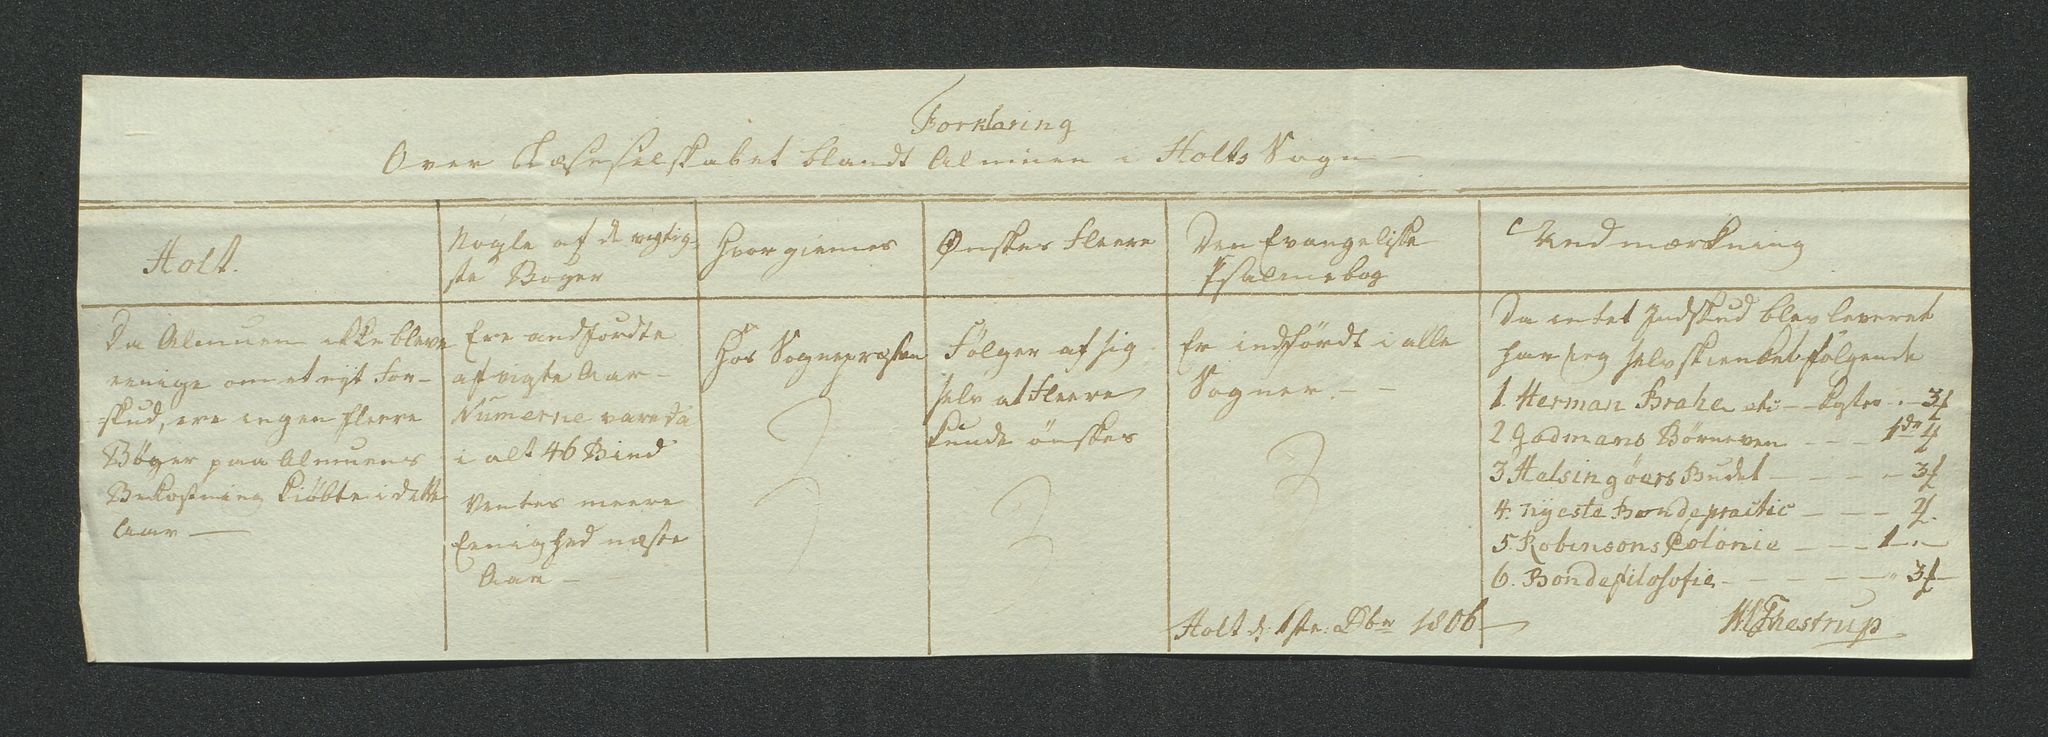 Forklaring
Over Læseselskabet blandt Almuen i Holts Sogn
Holt.
Nogle af de vigtig-
ste Bøger
Hvor giemes
Ønskes Fleere
Den Evangeliske
Psalmebog
Anmærkning
Da Almuen ikke bleve
eenige om et nyt For-
skud, ere ingen fleere
Bøger paa Almuens
Bekostning kiøbte i dette
Aar —
Ere andførdte
afvigte Aar —
Numerne vare da
i alt 46 Bind
Ventes meere
Eenighed næste
Aar —
Hos Sognepræsten
Følger af sig
selv at Fleere
kunde ønskes
Er indførdt i alle
Sogner. —
Da intet Indskud blev leveret
har jeg selv skienket følgende
1. Herman Brahe 3
2 Godmans Børneven - - - 1
3 Helsingøers Budet - - - 3
4. Nyeste Bondepractic - - -
5. Robinsons Colonie - - - 1
6. Bondefilosofie - - - 3
Holt d: 1ste Dbr 1806 —
Thestrup